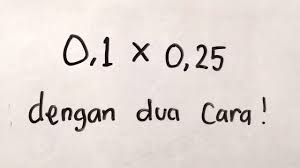 0,1 × 0,25
dengan dua cara!